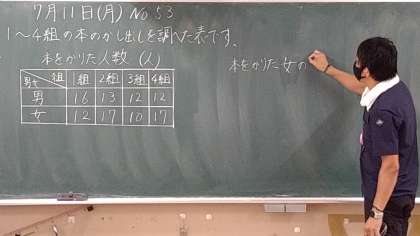 7月11日(月) No.53
1〜4組の本のかし出しを調べた表です。
本をかりた人数 (人)
男女 組 1組 2組 3組 4組
男 16 13 12 12
女 12 17 10 17
本をかりた女の